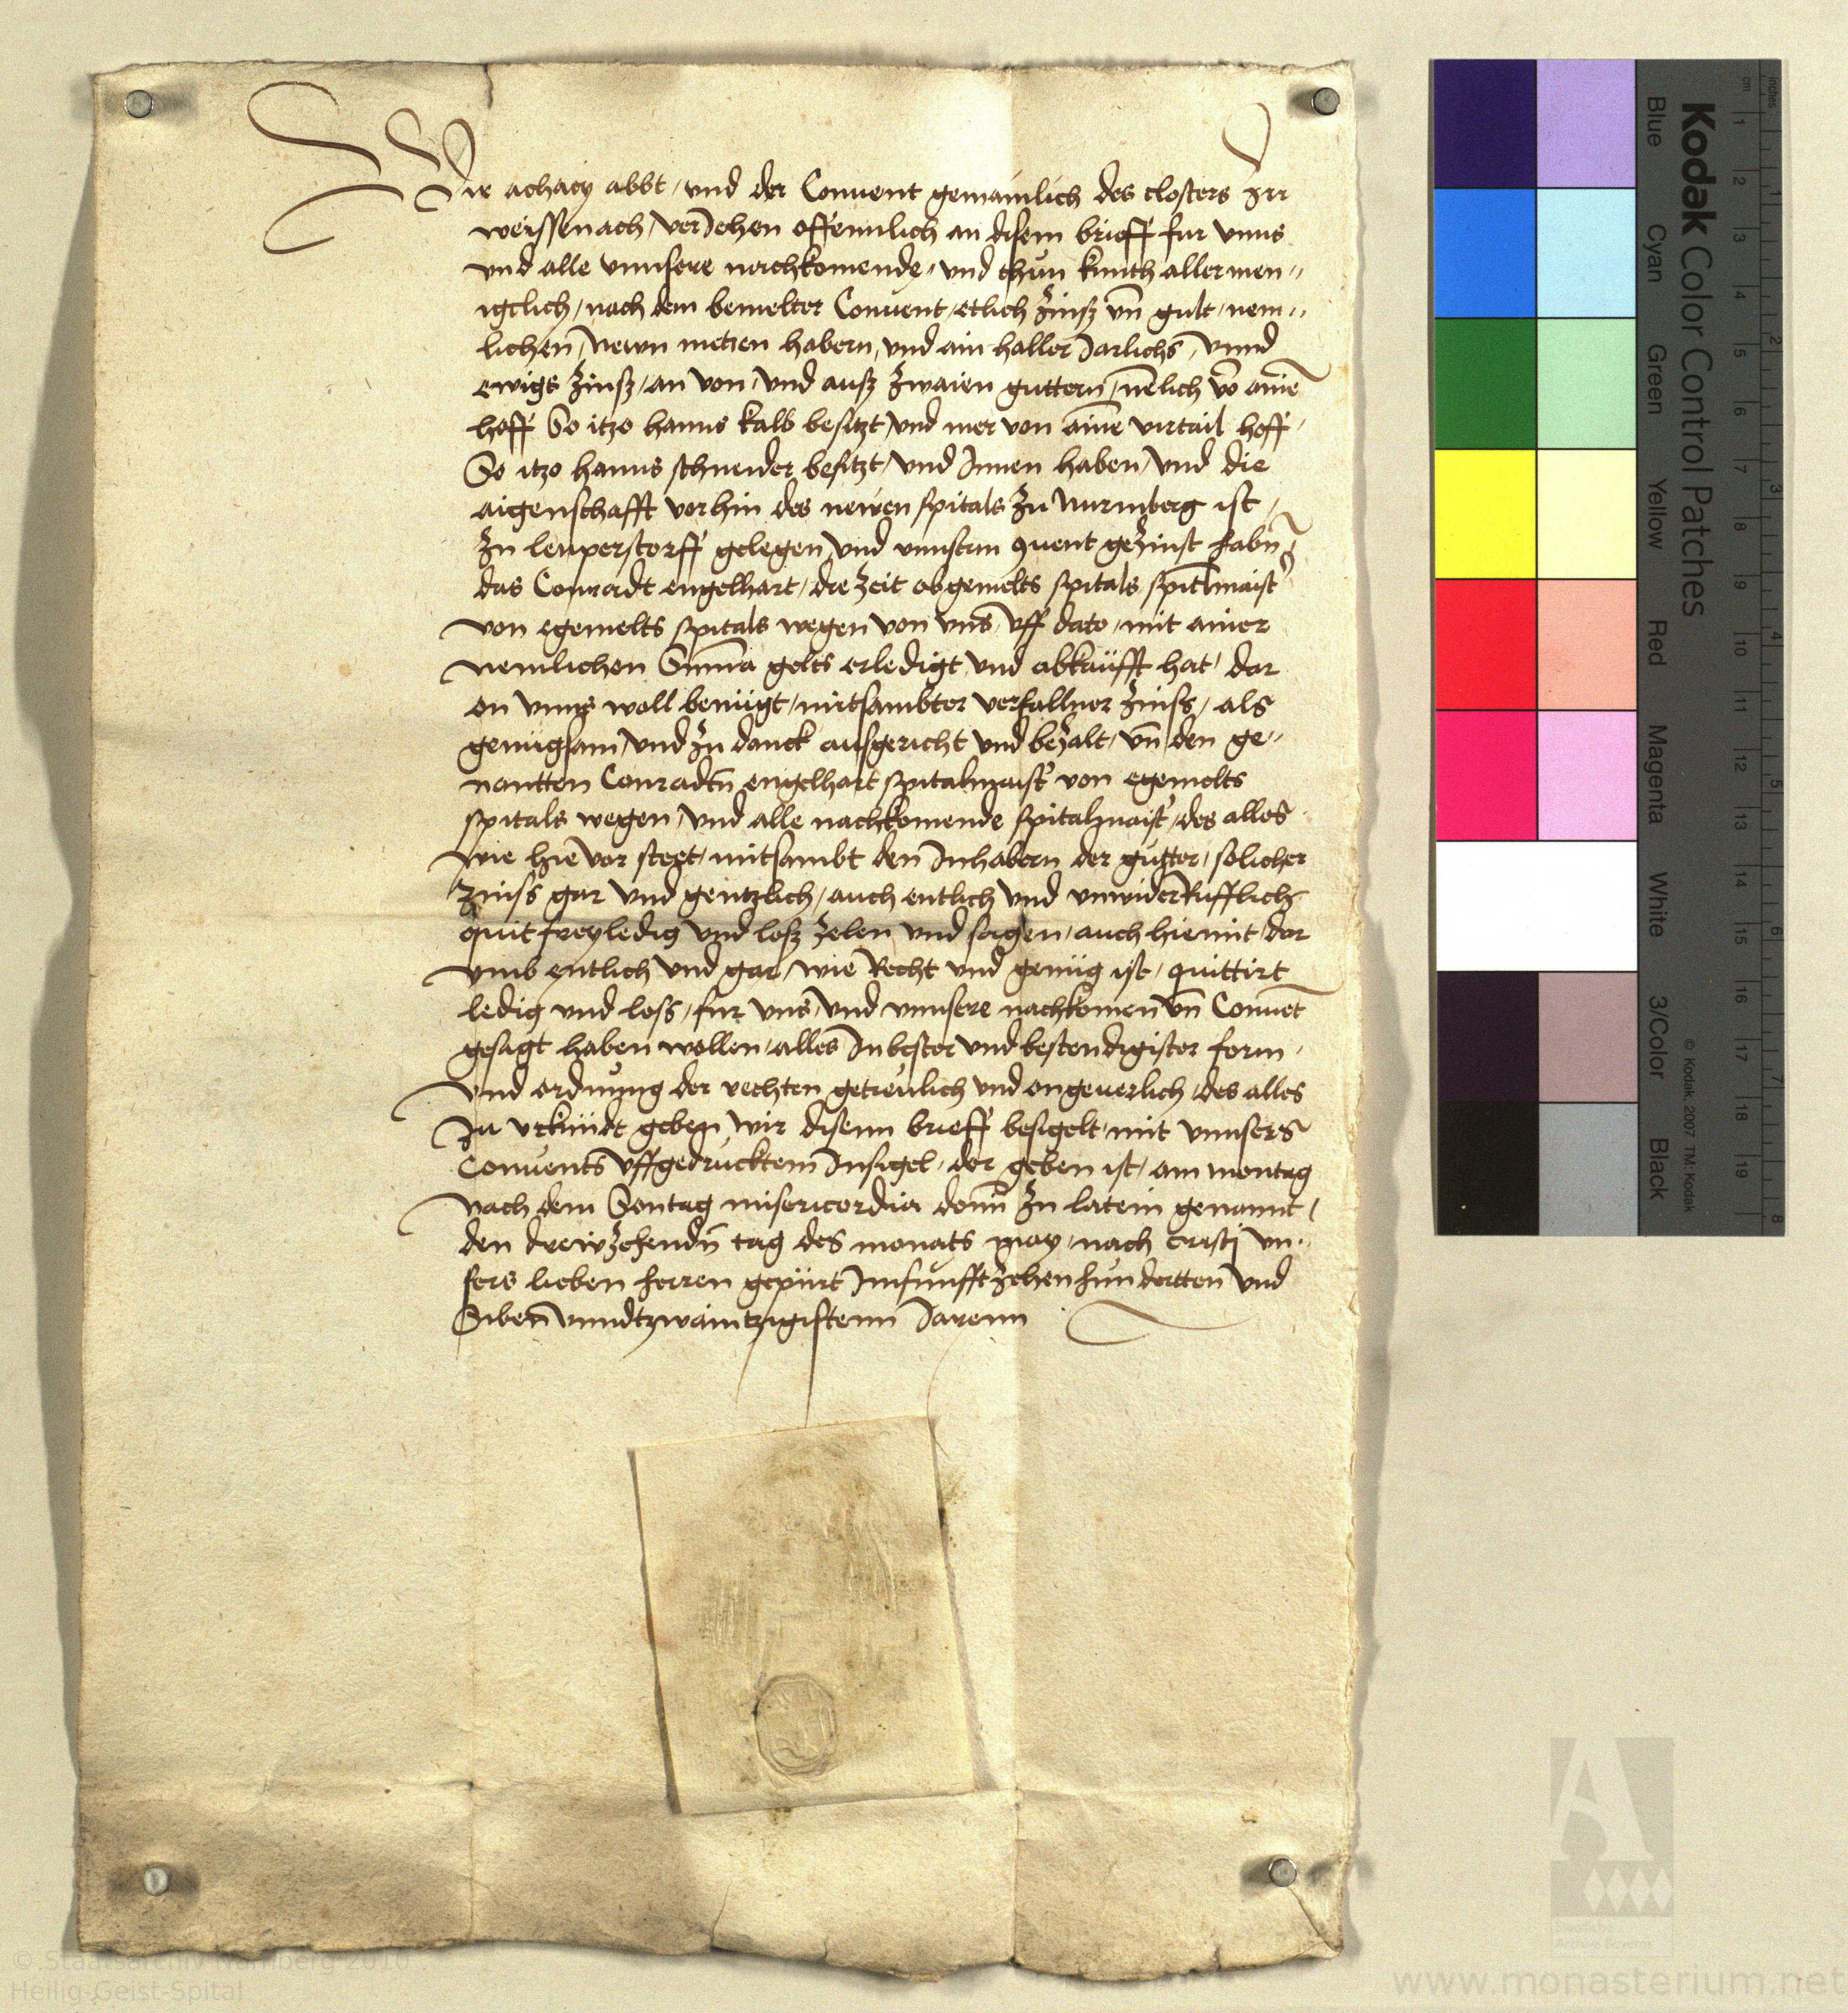 Wir achacy abbt / und der Convent gemainlich des closters Zu
weissenach / veriehen offennlich an disem brieff fur vnns
vnd alle vnnsere nachkomende / und thun kunth allermen„
igclich / nach dem bemelter Convent / etlich Zinss vn̄ gult / nem„
lichen / Newn metzen habern / und ain haller Jarlichs / vnnd
ewigs Zinss / an von / und auss Zwaien guttern / nēlich vō ainē
hoff So itzo hanns kalb besitzt / und mer von ainē virtail hoff /
So itzo hanns schneider besitzt / vnd Innen haben / und die
aigenschafft vorhin des newen spitals Zu Nurmberg ist /
Zu leuperstorff gelegen / und vnnserm 9uent geZinst habn̄ /
das Conradt engelhart / die Zeit obgemelts spitals spitlmaist'
von egemelts spitals wegen von vns / vff dato / mit ainer
nemlichen Summa gelts erledigt / und abkaufft hat / dar
an vnns woll benügt / mitsambter verfallner Zinss / als
genügsam / und Zu danck aussgericht und beZalt / vn̄ den ge„
nantten Conradtn̄ engelhart spitalmaist' von egemelts
spitals wegen / und alle nachkomende spitalmaist' / des alles
wie hie vor steet / mitsambt den Inhabern der gutter / solicher
Zinss gar und gentzlich / auch entlich und unwiderRufflich
quit frey ledig und loss Zelen und sagen / auch hiemit / dar
vmb entlich und gar / wie Recht und genüg ist / quittirt
ledig und loss / fur vns / und vnnsere nachkomen vn̄ Convēt
gesagt haben wollen / alles In bester und bestendigister form /
Vnd ordnung der rechten getreulich und ongeuerlich / des alles
Zu vrkundt geben wir disenn brieff besigelt / mit vnnsers
Convents vffgedrucktem Insigel / der geben ist / am montag
Nach dem Sontag misericordia domī Zu latein genannt /
den dreiZehendn̄ tag des monats may / nach cristj vn„
sers lieben herren gepurt Im funfftZehen hundertten und
Siben vnndtzwaintzigistenn Jarenn
Kodak Color Control Patches
Blue Cyan Green Yellow Red Magenta White 3/Color Black
© Kodak, 2007 TM: Kodak
cm 1 2 3 4 5 6 7 8 9 10 11 12 13 14 15 16 17 18 19
inches 1 2 3 4 5 6 7 8
© Staatsarchiv Nürnberg 2010
Heilig-Geist-Spital
www.monasterium.net